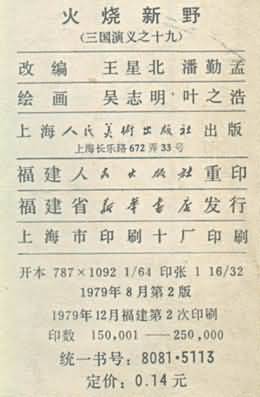 火烧新野
(三国演义之十九)
改编 王星北 潘勤孟
绘画 吴志明·叶之浩
上海人民美术出版社出版
上海长乐路672弄33号
福建人民出版社重印
福建省新华书店发行
上海市印刷十厂印刷
开本 787×1092 1/64 印张 1 16/32
1979年8月第2版
1979年12月福建第2次印刷
印数 150,001——250,000
统一书号：8081·5113
定价：0.14元